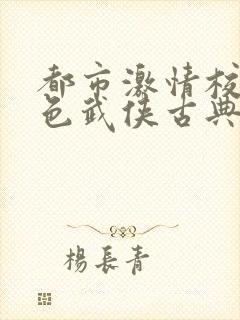 都市激情校
色武侠古典
楊長青